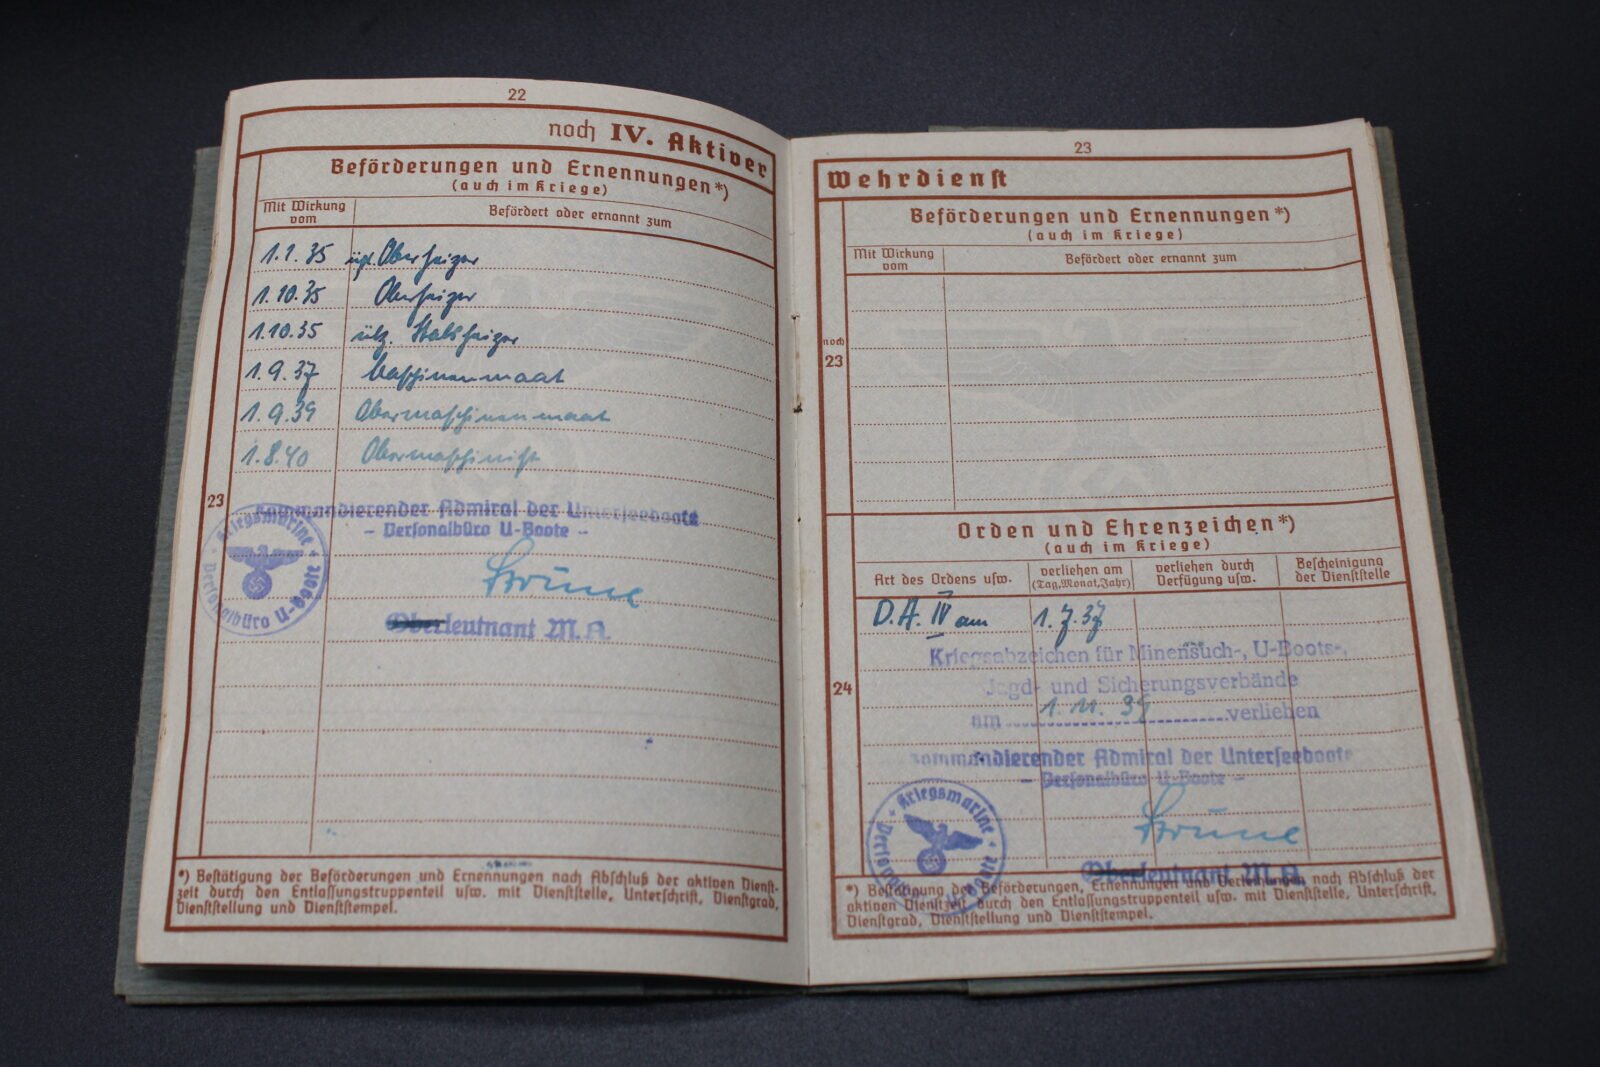 22
noch IV. Aktiver
Beförderungen und Ernennungen*)
(auch im Kriege)
Mit Wirkung vom
Befördert oder ernannt zum
1.1.35 Oberheizer
1.10.35 Oberheizer
1.10.35 Stabsheizer
1.9.37 Maschinenmaat
1.9.39 Obermaschinenmaat
1.8.40 Obermaschinist
23
Kommandierender Admiral der Unterseeboote
- Personalbüro U-Boote -
Kriegsmarine
Personalbüro U-Boote
Oberleutnant M.A.
*) Bestätigung der Beförderungen und Ernennungen nach Abschluß der aktiven Dienst-
zeit durch den Entlassungstruppenteil usw. mit Dienststelle, Unterschrift, Dienstgrad,
Dienststellung und Dienststempel.
23
Wehrdienst
Beförderungen und Ernennungen*)
(auch im Kriege)
Mit Wirkung vom
Befördert oder ernannt zum
noch
23
Orden und Ehrenzeichen*)
(auch im Kriege)
Art des Ordens usw.
verliehen am (Tag, Monat, Jahr)
verliehen durch Verfügung usw.
Bescheinigung der Dienststelle
D.A. IV am 1.7.37
Kriegsabzeichen für Minensuch-, U-Boots-,
Jagd- und Sicherungsverbände
24
am 1.11.39 verliehen
Kommandierender Admiral der Unterseeboote
- Personalbüro U-Boote -
Kriegsmarine
Personalbüro U-Boote
Oberleutnant M.A.
*) Bestätigung der Beförderungen, Ernennungen und Verleihungen nach Abschluß der
aktiven Dienstzeit durch den Entlassungstruppenteil usw. mit Dienststelle, Unterschrift,
Dienstgrad, Dienststellung und Dienststempel.